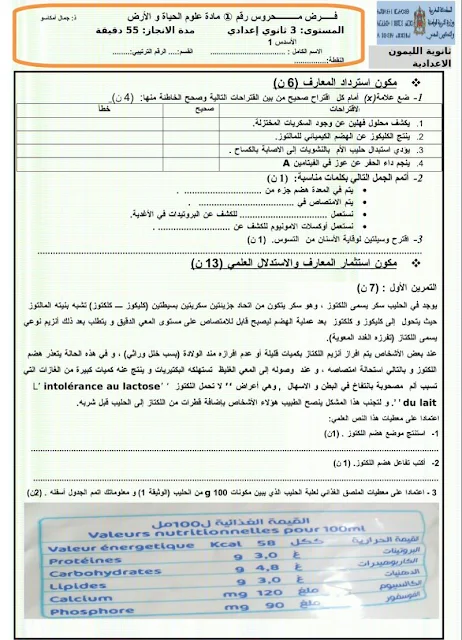 ذ: جمال أمكاسو
فـــرض مـــــحروس رقم ① مادة علوم الحياة و الأرض
المستوى: 3 ثانوي إعدادي مدة الانجاز: 55 دقيقة
الأسدس 1
الاسم الكامل : ........................ القسم:.... الرقم الترتيبي:.......
النقطة:..................
ثانوية الليمون
الاعدادية
❖ مكون استرداد المعارف (6 ن)
1- ضع علامة(x) أمام كل اقتراح صحيح من بين القتراحات التالية وصحح الخاطئة منها: (4 ن)
الاقتراحات صحيح خطأ
1. يكشف محلول فهلين عن وجود السكريات المختزلة.
2. ينتج الكليكوز عن الهضم الكيميائي للمالتوز.
3. يؤدي استبدال حليب الأم بالنشويات إلى الاصابة بالكساح .
4. ينجم داء الحفر عن عوز في الفيتامين A
2- أتمم الجمل التالي بكلمات مناسبة: (1 ن)
• يتم في المعدة هضم جزء من ........................ .
• يتم الامتصاص في ........................ .
• نستعمل ........................ للكشف عن البروتيدات في الأغدية.
• نستعمل أوكسلات الامونيوم للكشف عن ........................ .
3- اقترح وسيلتين لوقاية الأسنان من التسوس. (1 ن)
❖ مكون استثمار المعارف والاستدلال العلمي (13 ن)
التمرين الأول : (7 ن)
يوجد في الحليب سكر يسمى اللكتوز ، وهو سكر يتكون من اتحاد جزيئتين سكريتين بسيطتين (كليكوز ــ كلكتوز) تشبه بنيته المالتوز
حيث يتحول إلى كليكوز و كلكتوز بعد عملية الهضم ليصبح قابل للامتصاص على مستوى المعي الدقيق و يتطلب بعد ذلك أنزيم نوعي
يسمى اللكتاز (تفرزه الغدد المعوية).
عند بعض الأشخاص يتم افراز أنزيم اللكتاز بكميات قليلة أو عدم افرازه منذ الولادة (بسب خلل وراثي) ، و في هذه الحالة يتعذر هضم
اللكتوز و بالتالي استحالة امتصاصه ، و عند وصوله إلى المعي الغليظ تستهلكه البكتيريات و ينتج عنه كميات كبيرة من الغازات التي
تسبب ألم مصحوبة بانتفاخ في البطن و الاسهال , وهي أعراض '' لا تحمل اللكتوز '' L' intolérance au lactose
du lait '' . و لتجنب هذا المشكل ينصح الطبيب هؤلاء الأشخاص باضافة قطرات من اللكتاز إلى الحليب قبل شربه.
اعتمادا على معطيات هذا النص العلمي:
1- استنتج موضع هضم اللكتوز . (1ن)
2- أكتب تفاعل هضم اللكتوز. (1 ن)
3 - اعتمادا على معطيات الملصق الغذائي لعلبة الحليب الذي يبين مكونات 100 g من الحليب (الوثيقة 1) و معلوماتك اتمم الجدول أسفله . (2ن)
القيمة الغذائية ل100مل
Valeurs nutritionnelles pour 100ml
Valeur énergetique Kcal 58 ككل القيمة الحرارية
Protéines g 3,0 غ البروتينات
Carbohydrates g 4,8 غ الكاربوهيدرات
Lipides g 3,0 غ الدهنيات
Calcium mg 120 ملغ الكالسيوم
Phosphore mg 90 ملغ الفوسفور